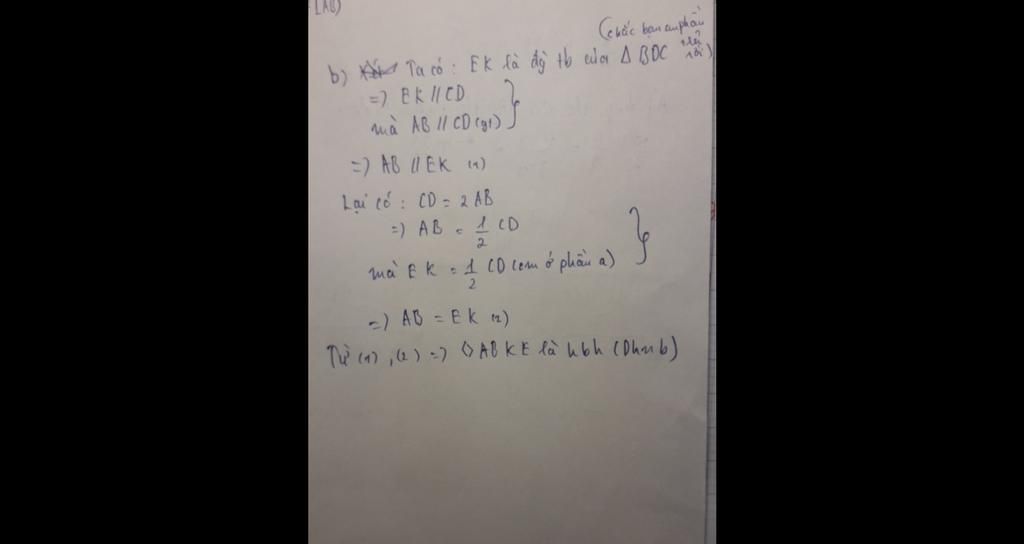 (AB)
(chắc bạn cm phần
b) Ta có : EK là đg tb của Δ BDC rồi)
=) EK // CD
mà AB // CD (gt)
=) AB // EK (1)
Lại có : CD = 2 AB
=) AB = 1/2 CD
mà EK = 1/2 CD (cm ở phần a)
=) AB = EK (2)
Từ (1), (2) =) ◇ ABKE là hbh (Dhnb)